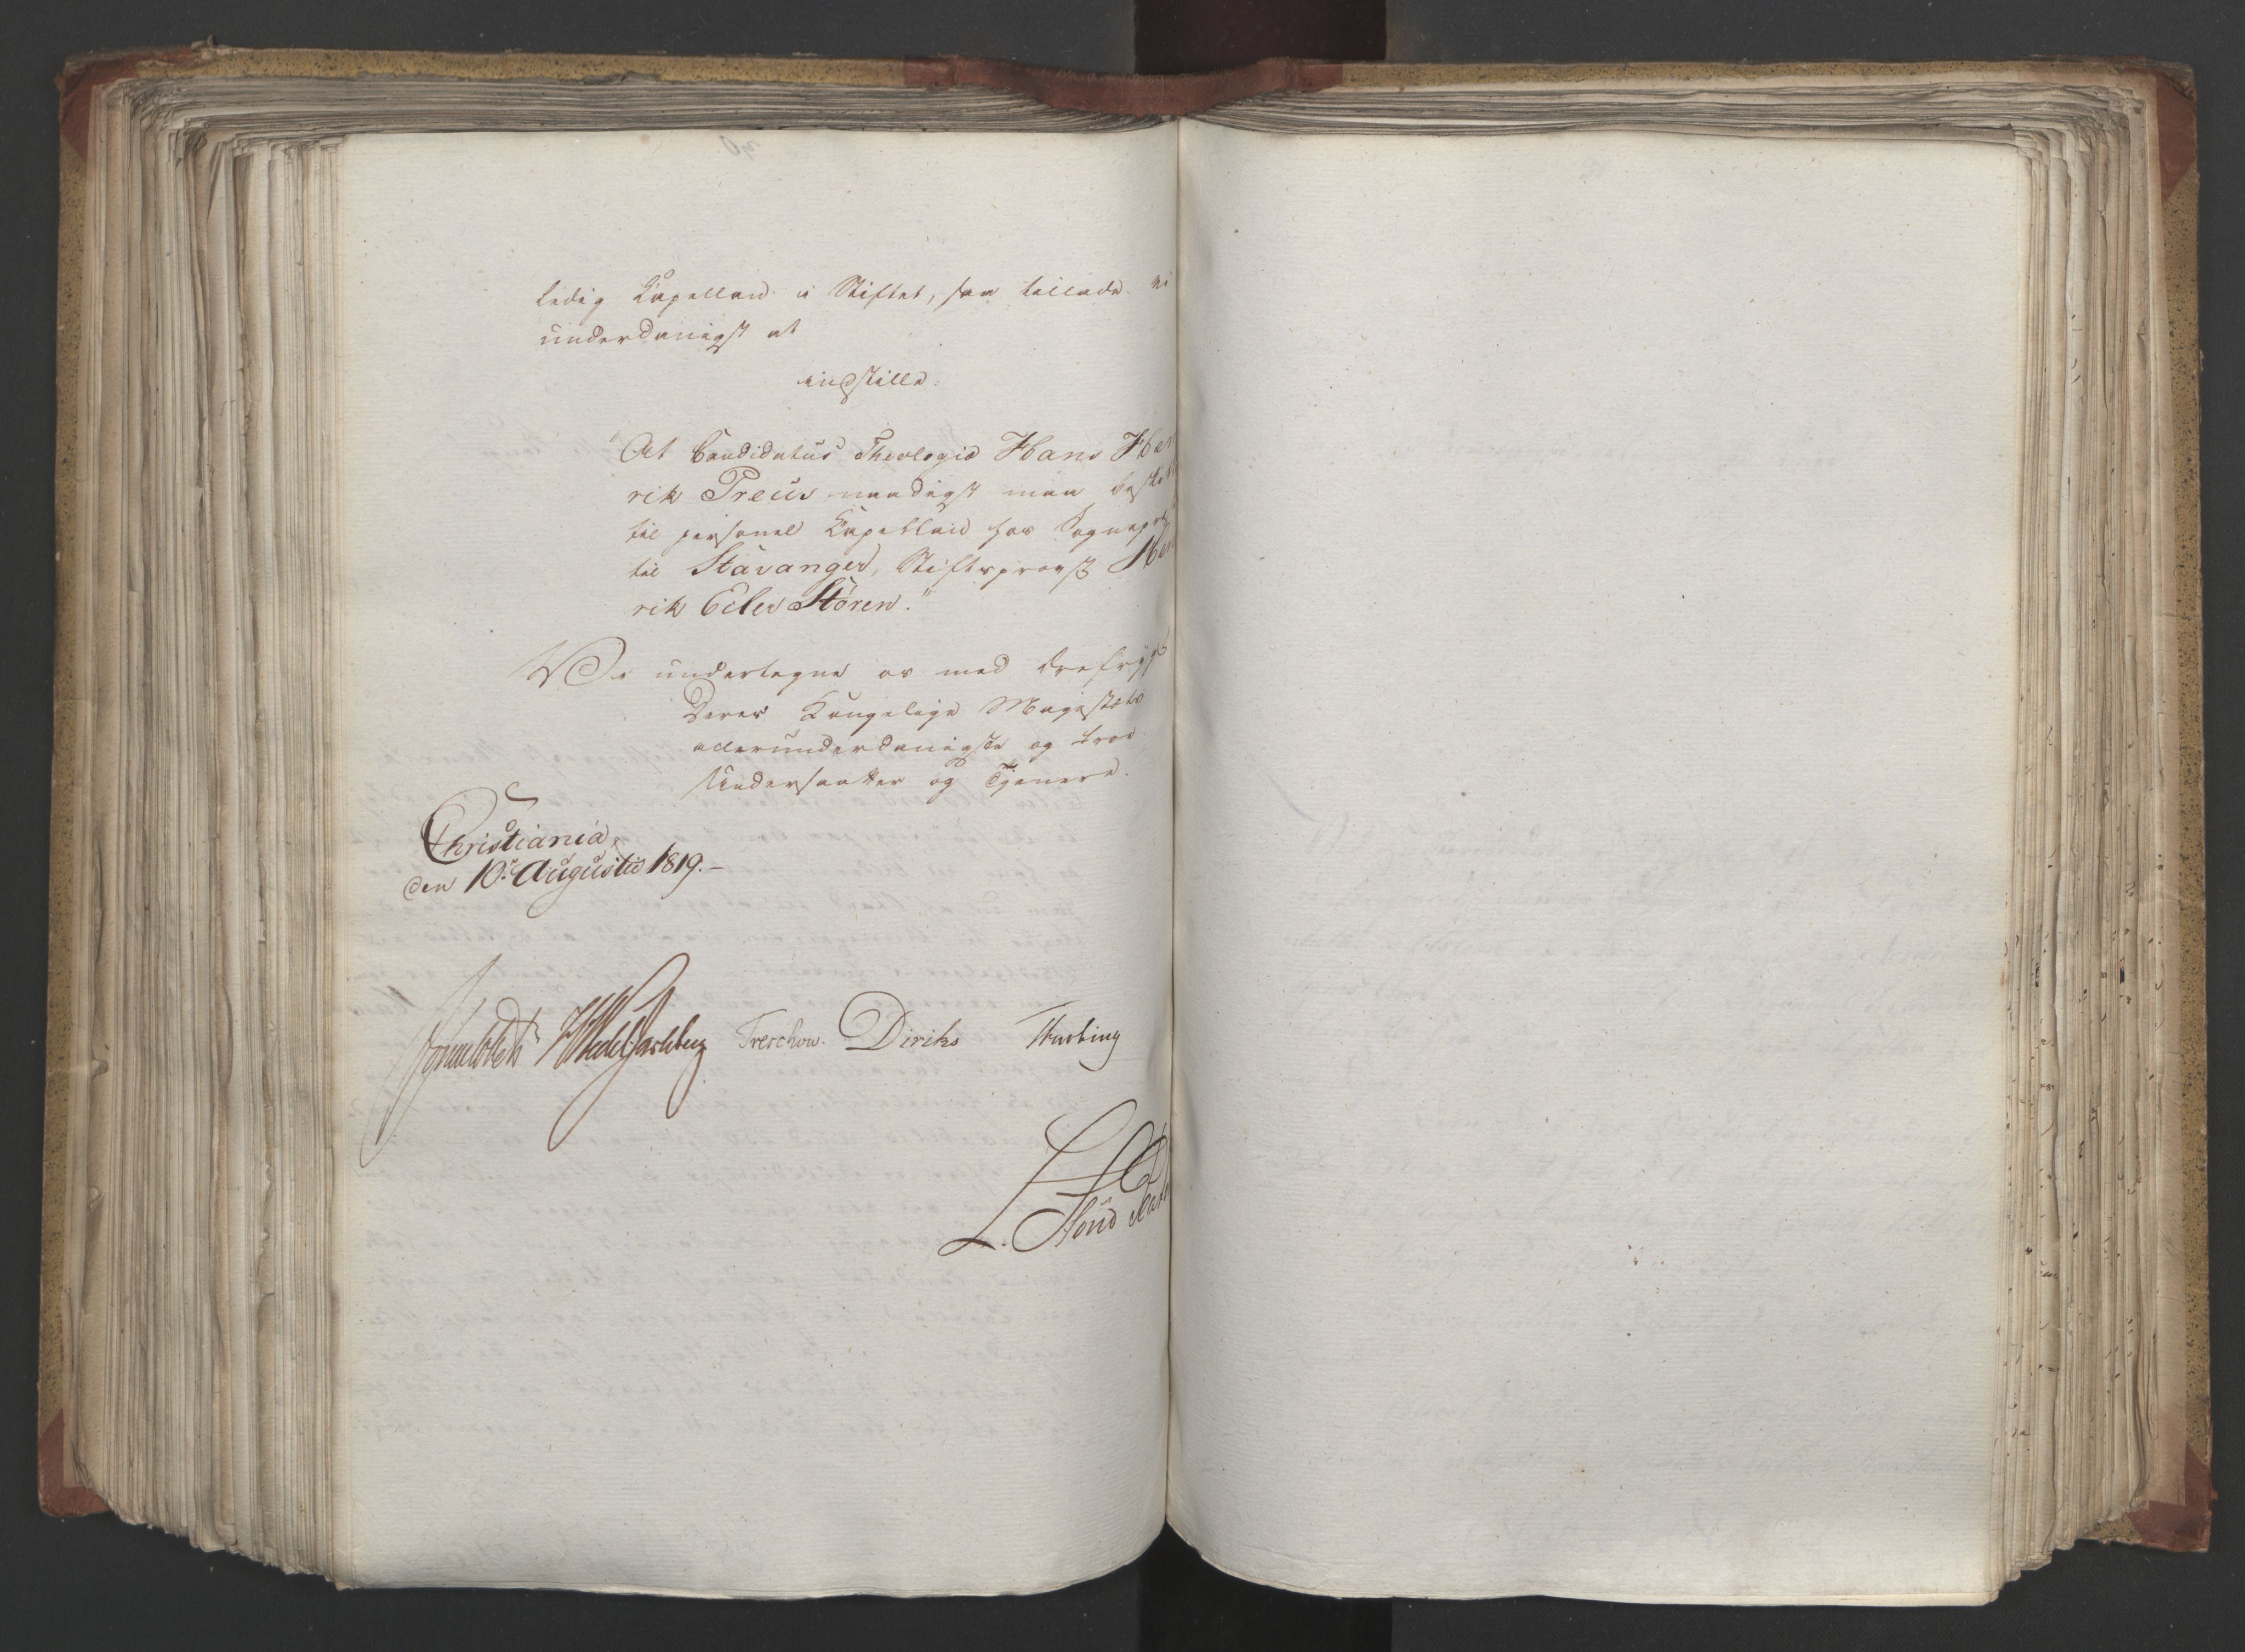 ledig Capellan i Stiftet, saa tillade vi
underdanigst at
indstille:
"At Candidatus Theologiæ Hans Hen
rik Preus naadigst maa beskik
til personel Capellan hos Sognepr
til Stavanger, Stiftsprovst Hen
rik Eiler Støren."
Vi undertegne os med Ærefrygt
Deres Kongelige Majestæts
allerunderdanigste og troe
Undersaatter og Tjenere.
Christiania,
den 10de Augusti 1819.-
Sommerhielm HWedel Jarlsberg Treschow. Diriks Fasting
L.